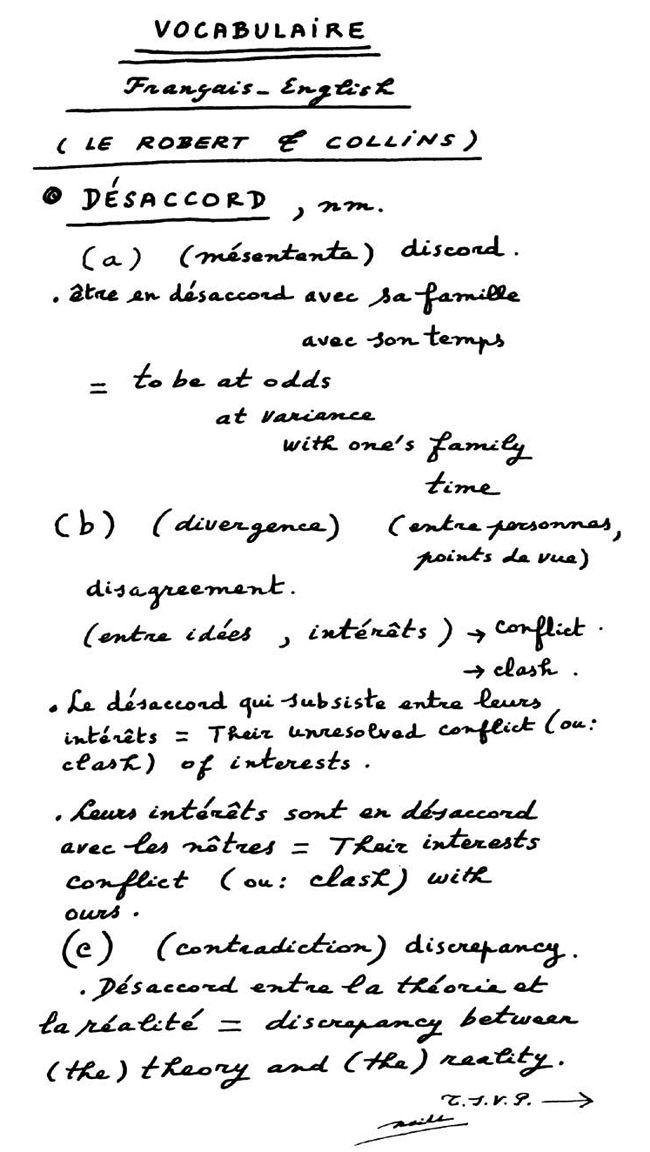 VOCABULAIRE
Français - English
( LE ROBERT & COLLINS )
• DÉSACCORD , nm.
(a) (mésentente) discord .
. être en désaccord avec sa famille
avec son temps
= to be at odds
at variance
with one's family
time
(b) (divergence) (entre personnes,
points de vue)
disagreement.
(entre idées , intérêts ) → conflict .
→ clash .
. Le désaccord qui subsiste entre leurs
intérêts = Their unresolved conflict (ou:
clash) of interests .
. Leurs intérêts sont en désaccord
avec les nôtres = Their interests
conflict ( ou: clash) with
ours .
(c) (contradiction) discrepancy.
. Désaccord entre la théorie et
la réalité = discrepancy between
(the) theory and (the) reality.
T.S.V.P. →